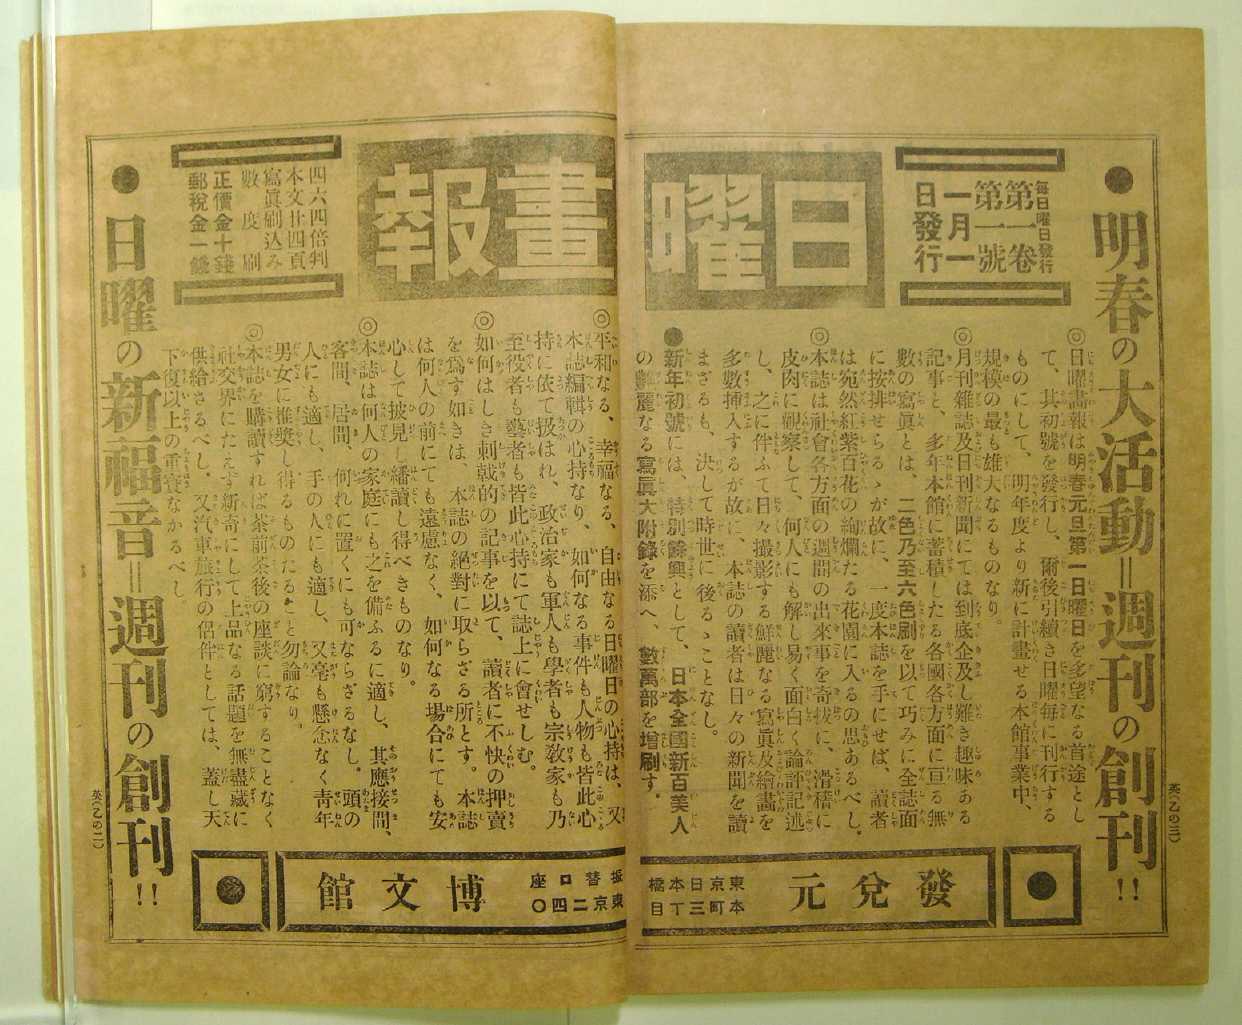 ●明春の大活動＝週刊の創刊!!
每日曜日發行
第一卷
第一號
一月一
日發行
日曜畫報
四六四倍判
本文廿四頁
寫眞刷込み
數度刷
正價金十錢
郵税金一錢
◎日曜畫報は明春元旦第一日曜日を多望なる首途とし
て、其初號を發行し、爾後引續き日曜每に刊行する
ものにして、明年度より新に計畫せる本館事業中、
規模の最も雄大なるものなり。
◎月刊雜誌及日刊新聞にては到底企及し難き趣味ある
記事と、多年本館に蓄積したる各國各方面に亘る無
數の寫眞とは、二色乃至六色刷を以て巧みに全誌面
に按排せらるゝが故に、一度本誌を手にせば、讀者
は宛然紅紫百花の絢爛たる花園に入るの思あるべし。
◎本誌は社會各方面の週間の出來事を奇拔に、滑稽に
皮肉に觀察して、何人にも解し易く面白く論評記述
し、之に伴ふて日々撮影する鮮麗なる寫眞及繪畫を
多數挿入するが故に、本誌の讀者は日々の新聞を讀
まざるも、決して時世に後るゝことなし。
●新年初號には、特別餘興として、日本全國新百美人
の麗なる寫眞大附錄を添へ、數萬部を增刷す。
◎平和なる、幸福なる、自由なる日曜日の心持は、又
本誌編輯の心持なり、如何なる事件も人物も皆此心
持に依て扱はれ、政治家も軍人も學者も宗敎家も乃
至役者も藝者も皆此心持にて誌上に會せしむ。
◎如何はしき刺戟的の記事を以て、讀者に不快の押賣
を爲す如きは、本誌の絕對に取らざる所とす。本誌
は何人の前にても遠慮なく、如何なる場合にても安
心して披見し繙讀し得べきものなり。
◎本誌は何人の家庭にも之を備ふるに適し、其應接間、
客間、居間、何れに置くにも可ならざるなし。頭の
人にも適し、手の人にも適し、又毫も懸念なく靑年
男女に推奬し得るものたること勿論なり。
◎本誌を購讀すれば茶前茶後の座談に窮することなく
社交界にたえず新奇にして上品なる話題を無盡藏に
供給さるべし、又汽車旅行の侶伴としては、蓋し天
下復以上の重寶なかるべし。
●日曜の新福音＝週刊の創刊!!
發兌元
東京日本橋
本町三丁目
博文館
振替口座
東京二四〇
英(乙の三)
英(乙の二)